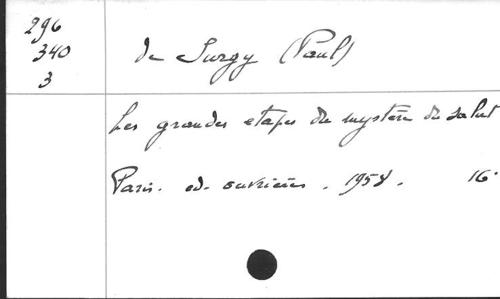 296
340
3
de Surgy (Paul)
Les grandes etapes du mystère du salut
Paris. ed. ouvrières. 1958. 16°